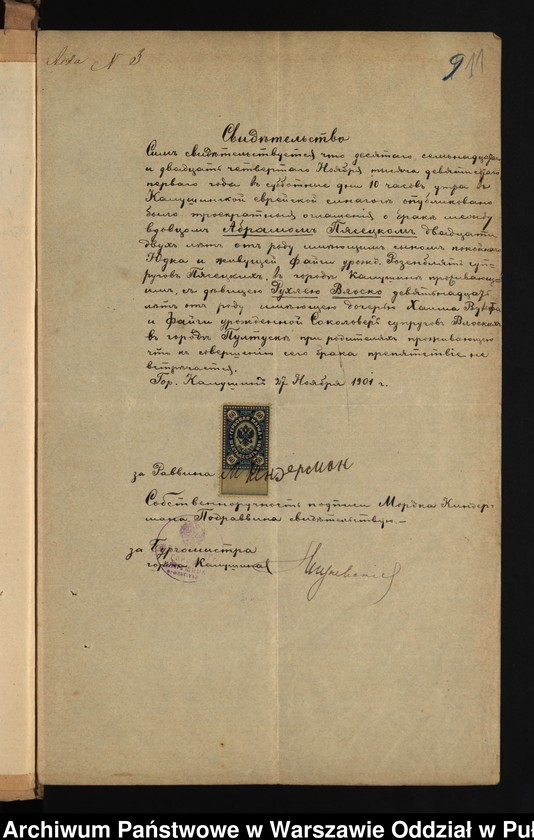 Акта N 3
911
Свидѣтельство
Симъ свидѣтельствуется что десятаго, семьнадцатаго
и двадцать четвертаго Ноября тысяча девятисотъ
перваго года въ субботные дни 10 часовъ утра въ
Калушинской еврейской синагогѣ опубликовано
было троекратныя оглашенія о бракѣ между
вдовцомъ Абрамомъ Пясецкомъ двадцати
двухъ лѣтъ отъ роду имѣющимъ сыномъ покойнаго
Юдка и живущей Файги урожд. Розенблятъ суп-
руговъ Пясецкихъ, въ городѣ Калушинѣ проживающ-
имъ, съ дѣвицею Рухлею Влоско девятьнадцать
лѣтъ отъ роду имѣющею дочерью Хаима
и Файги урожденной Соколоверъ супруговъ Влоскихъ
въ городѣ Пултускѣ при родителяхъ проживающею
что къ совершенію сего брака препятствіе не
встрѣчается.
Гор. Калушинъ 27 Ноября 1901 г.
за Раввина М Киндерман
Собственноручность подписи Мордка Киндер-
мана Подраввина свидѣтельствую.—
за Бургомистра
города Калушина
Archiwum Państwowe w Warszawie Oddział w Puł